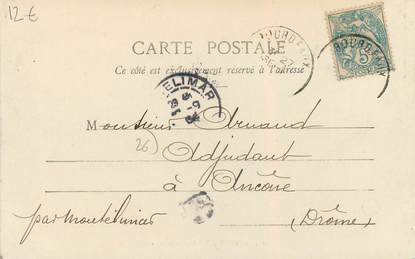 12 €
CARTE POSTALE
Ce côté est exclusivement réservé à l'adresse
BOURDEAUX
BOURDEAUX
5
ELIMAR
Monsieur Arnaud
26)
Adjudant
à Ancône
par Montélimar
(Drôme)